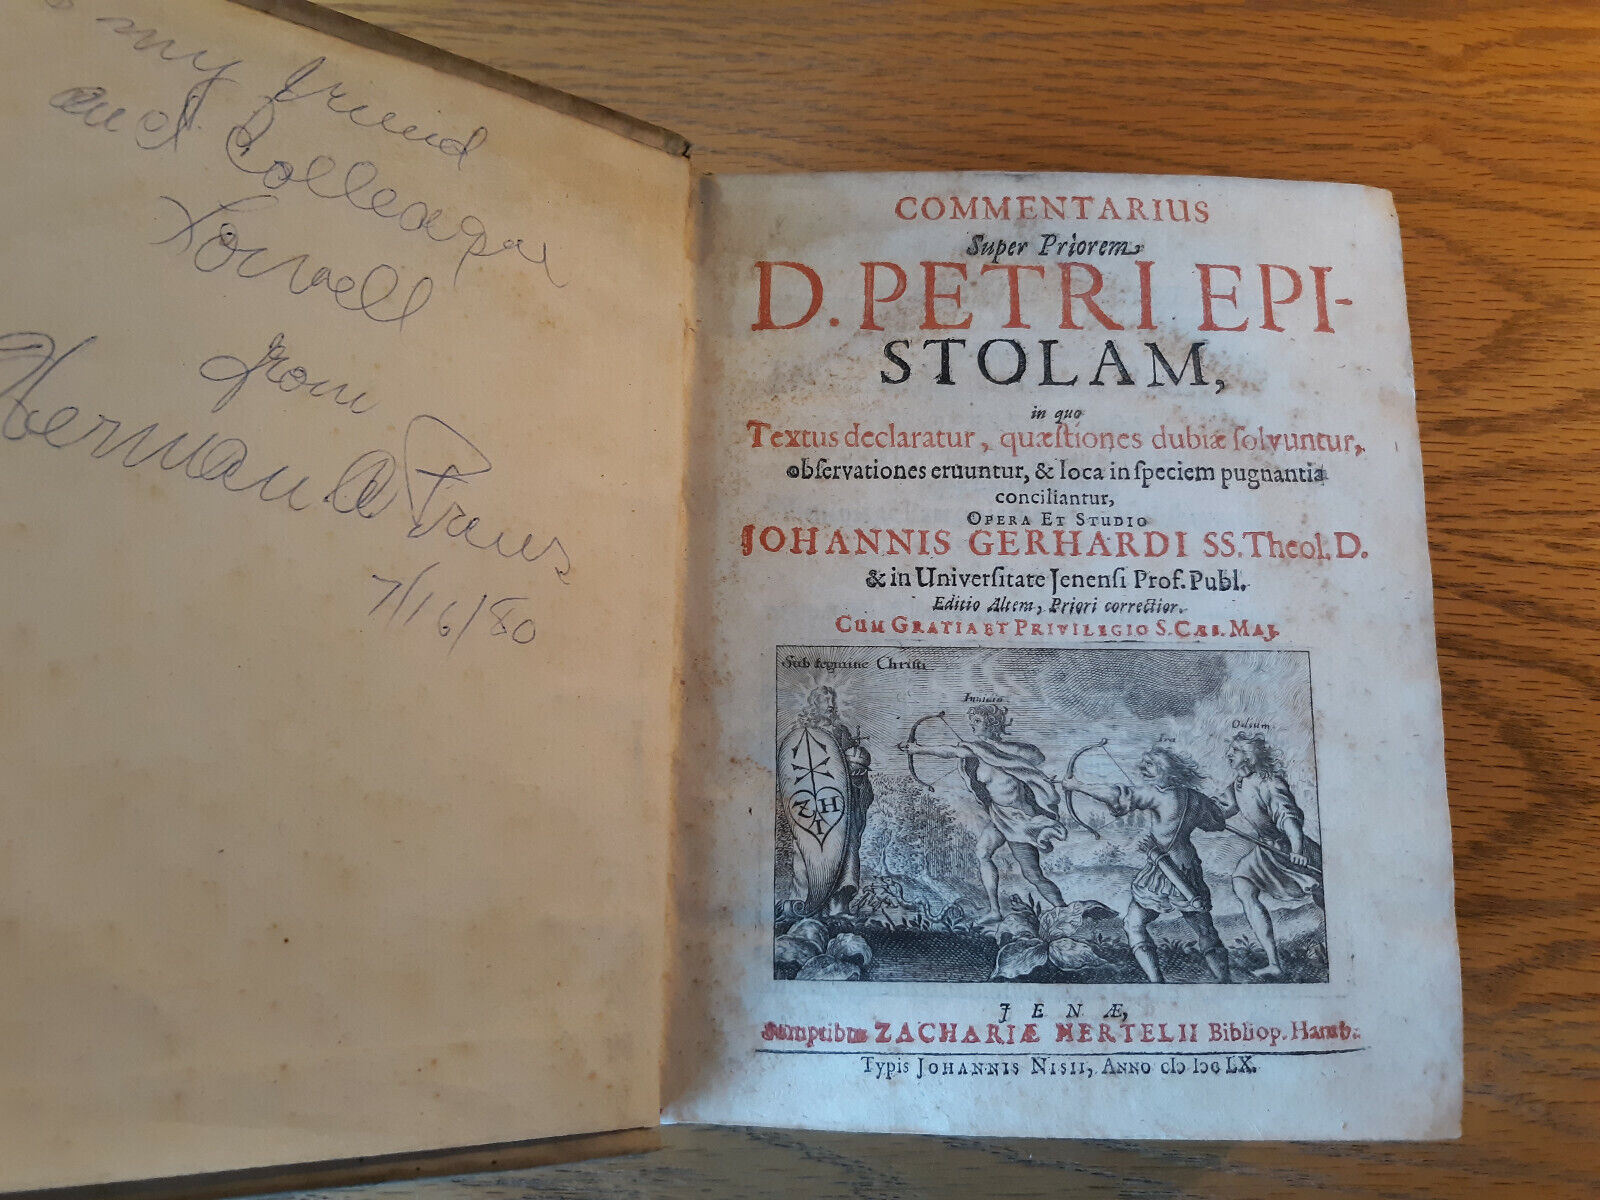 my friend
and Colleague
Lowell
from
Herman A Preus
7/16/80
COMMENTARIUS
Super Priorem
D. PETRI EPI-
STOLAM,
in quo
Textus declaratur, quæstiones dubiæ ſolvuntur,
obſervationes eruuntur, & loca in ſpeciem pugnantia
conciliantur,
OPERA ET STUDIO
JOHANNIS GERHARDI SS. Theol. D.
& in Univerſitate Jenenſi Prof. Publ.
Editio Altera, Priori correctior.
CUM GRATIA ET PRIVILEGIO S. CÆS. MAJ.
Sub tegmine Christi
Invidia
Ira
Odium
Z H
I
JENÆ,
Sumptibus ZACHARIÆ HERTELII Bibliop. Hamb.
Typis JOHANNIS NISII, ANNO cIɔ Iɔc LX.